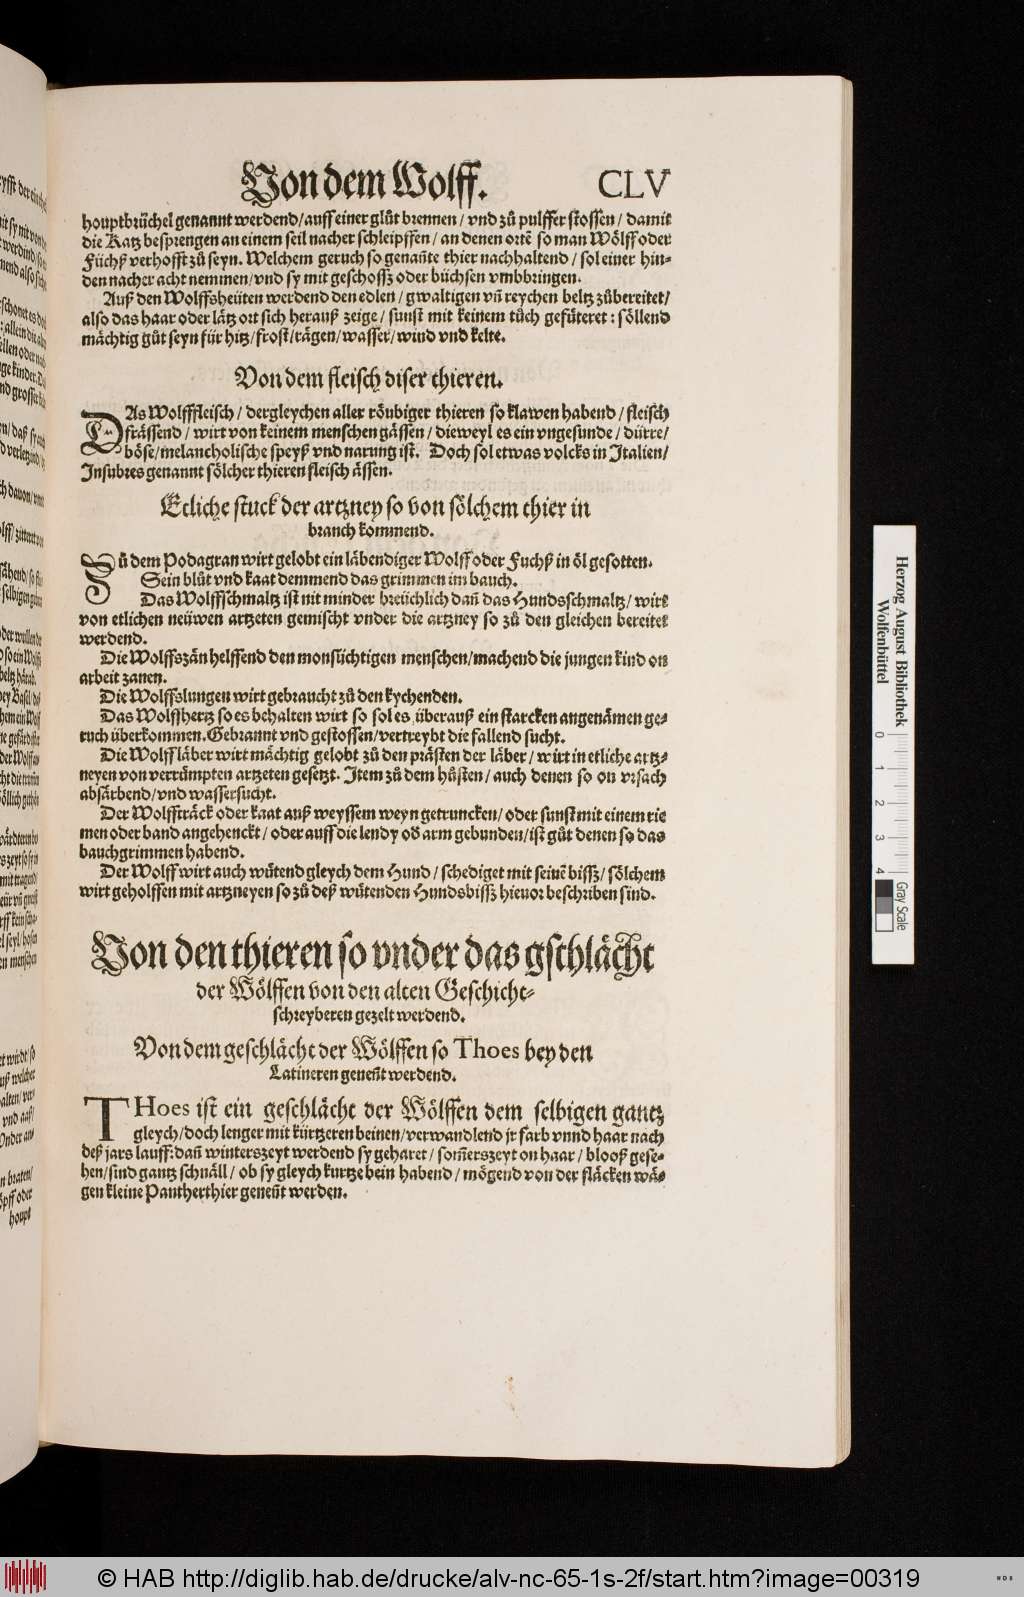 Von dem Wolff. CLV
houptbrüchel genannt werdend/auff einer glůt brennen/vnd zů pulffer stossen/damit
die Katz besprengen an einem seil nacher schleipffen/an denen ortē so man Wölff oder
Füchß verhofft zů seyn. Welchem geruch so genañte thier nachhaltend/sol einer hin-
den nacher acht nemmen/vnd sy mit geschossz oder büchsen vmbbringen.
Auß den Wolffsheüten werdend den edlen/gwaltigen vñ reychen beltz zůbereitet/
also das haar oder lätz ort sich herauß zeige/sunst mit keinem tůch gefüteret: söllend
mächtig gůt seyn für hitz/frost/rägen/wasser/wind vnd kelte.
Von dem fleisch diser thieren.
DAs Wolfffleisch/dergleychen aller röubiger thieren so klawen habend/fleisch
frässend/wirt von keinem menschen gässen/dieweyl es ein vngesunde/dürre/
böse/melancholische speyß vnd narung ist. Doch sol etwas volcks in Italien/
Insubres genannt sölcher thieren fleisch ässen.
Etliche stuck der artzney so von sölchem thier in
brauch kommend.
Zů dem Podagran wirt gelobt ein läbendiger Wolff oder Fuchß in öl gesotten.
Sein blůt vnd kaat demmend das grimmen im bauch.
Das Wolffschmaltz ist nit minder breüchlich dañ das Hundsschmaltz/wirt
von etlichen neüwen artzeten gemischt vnder die artzney so zů den gleichen bereitet
werdend.
Die Wolffszän helffend den monsüchtigen menschen/machend die jungen kind on
arbeit zanen.
Die Wolffslungen wirt gebraucht zů den kychenden.
Das Wolffhertz so es behalten wirt so sol es überauß ein starcken angenämen ge-
ruch überkommen. Gebrannt vnd gestossen/vertreybt die fallend sucht.
Die Wolffläber wirt mächtig gelobt zů den prästen der läber/wirt in etliche artz-
neyen von verrümpten artzeten gesetzt. Item zů dem hůsten/auch denen so on vrsach
absärbend/vnd wassersucht.
Der Wolffträck oder kaat auß weyssem weyn getruncken/oder sunst mit einem rie
men oder band angehenckt/oder auff die lendy ob arm gebunden/ist gůt denen so das
bauchgrimmen habend.
Der Wolff wirt auch wütend gleych dem Hund/schediget mit seinē bissz/sölchem
wirt geholffen mit artzneyen so zů deß wütenden Hundsbissz hieuor beschriben sind.
Von den thieren so vnder das gschlächt
der Wölffen von den alten Geschicht-
schreyberen gezelt werdend.
Von dem geschlächt der Wölffen so Thoes bey den
Latineren geneñt werdend.
THoes ist ein geschlächt der Wölffen dem selbigen gantz
gleych/doch lenger mit kürtzeren beinen/verwandlend jr farb vnnd haar nach
deß jars lauff: dañ winterszeyt werdend sy geharet/som̄erszeyt on haar/blooß gese-
hen/sind gantz schnäll/ob sy gleych kurtze bein habend/mögend von der fläcken wä-
gen kleine Pantherthier geneñt werden.
Herzog August Bibliothek
Wolfenbüttel
0 1 2 3 4
Gray Scale
© HAB http://diglib.hab.de/drucke/alv-nc-65-1s-2f/start.htm?image=00319